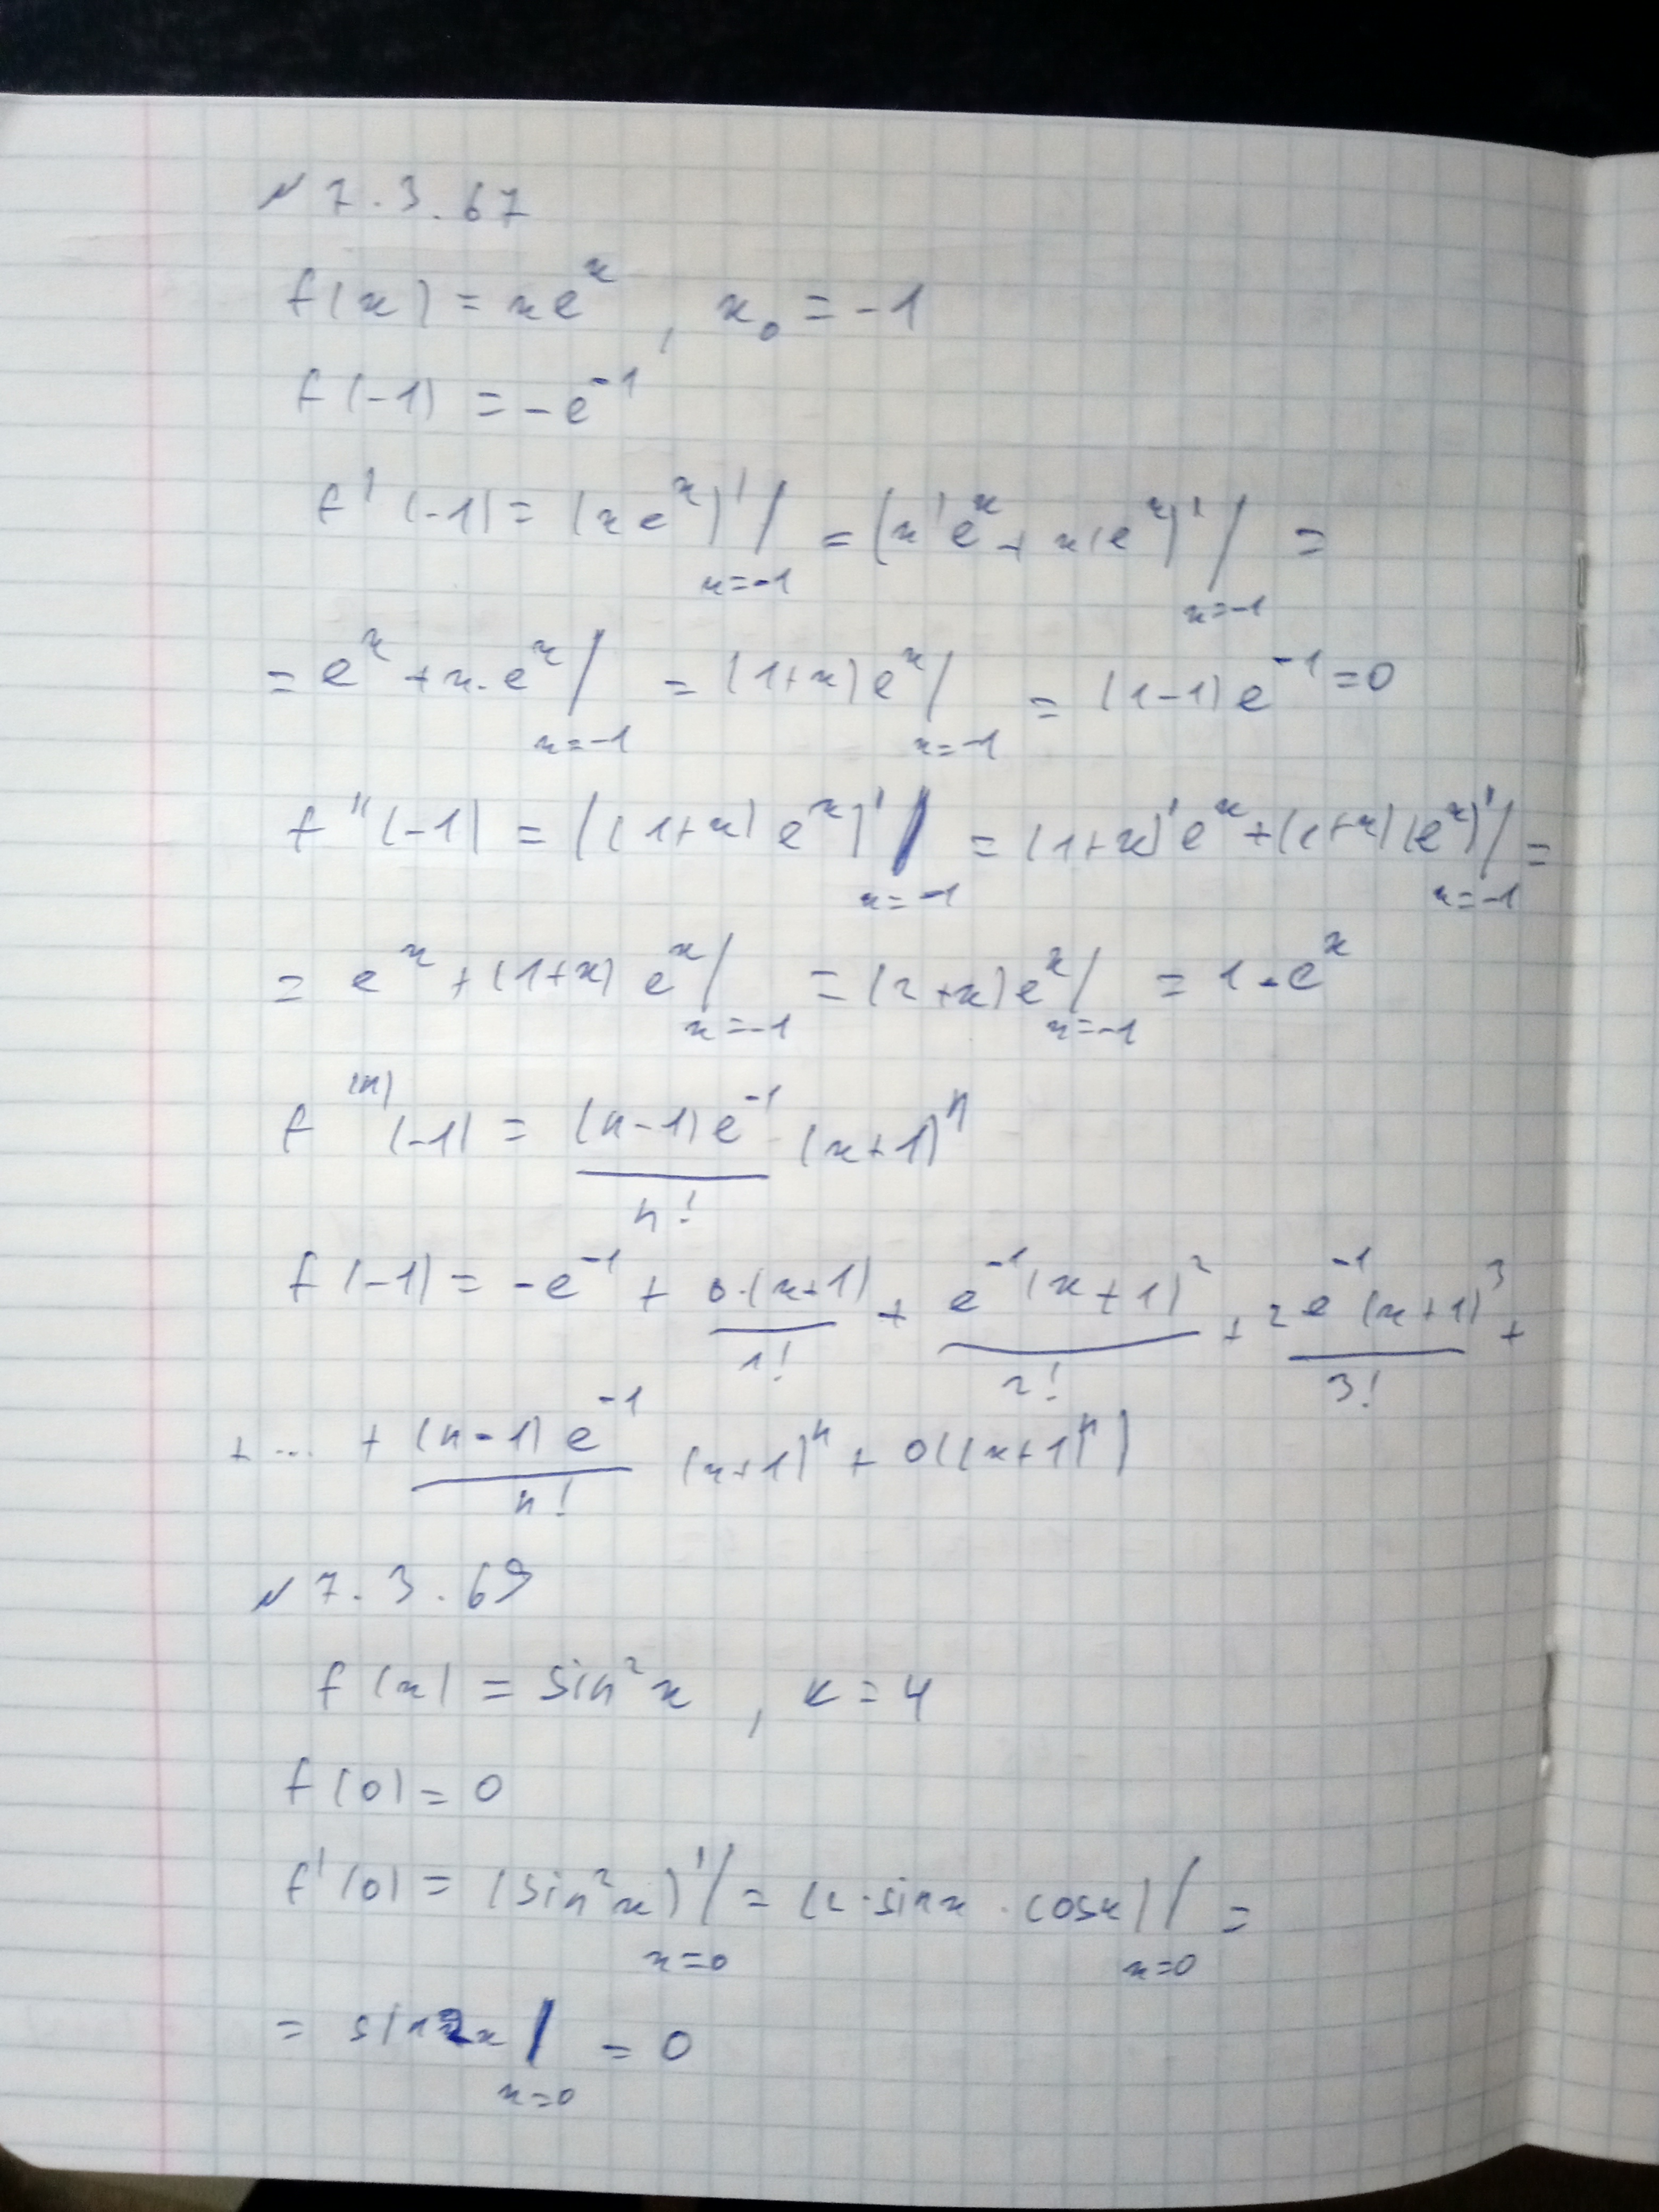 № 7.3.67
f(x) = xe^x, x₀ = -1
f(-1) = -e^-1
f'(-1) = (xe^x)'/x=-1 = (x'e^x + x(e^x)'/x=-1 =
= e^x + x·e^x/x=-1 = (1+x)e^x/x=-1 = (1-1)e^-1 = 0
f''(-1) = ((1+x)e^x)'/x=-1 = (1+x)'e^x + (1+x)(e^x)'/x=-1 =
= e^x + (1+x)e^x/x=-1 = (2+x)e^x/x=-1 = 1·e^x
f^(n)(-1) = (n-1)e^-1/n! (x+1)^n
f(-1) = -e^-1 + 0·(x+1)/1! + e^-1(x+1)^2/2! + 2e^-1(x+1)^3/3! +
+ ... + (n-1)e^-1/n! (x+1)^n + o((x+1)^n)
№ 7.3.69
f(x) = sin²x, k = 4
f(0) = 0
f'(0) = (sin²x)'/x=0 = (2·sinx·cosx)/x=0 =
= sin2x/x=0 = 0